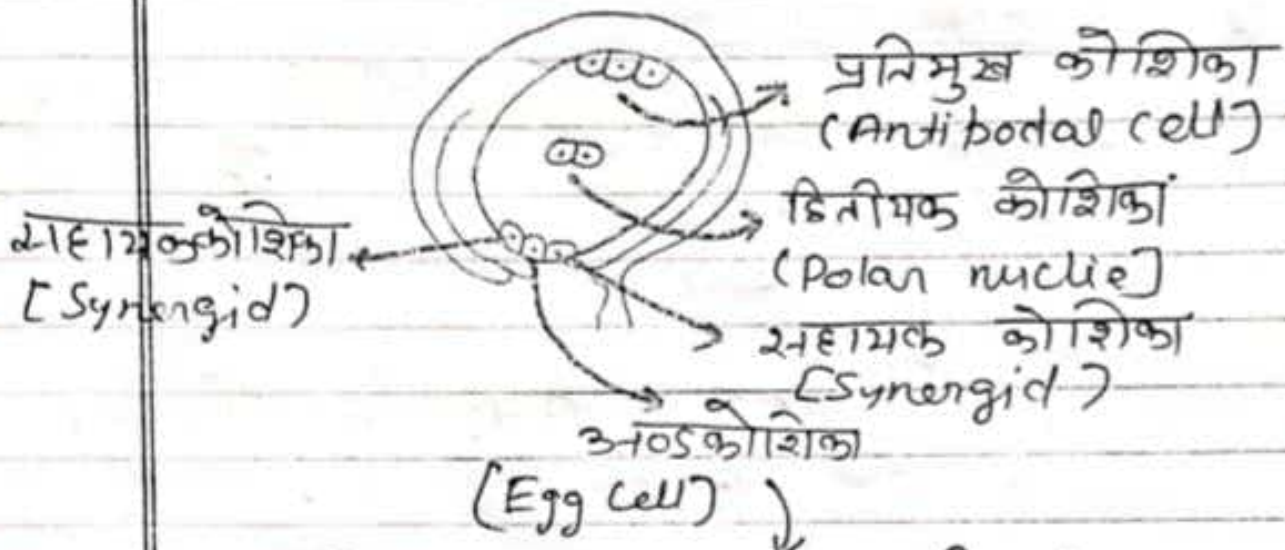 प्रतिमुख कोशिका
(Antipodal Cell)
द्वितीयक कोशिका
(Polar nuclie]
सहायक कोशिका
[Synergid)
सहायक कोशिका
[Synergid)
अण्डकोशिका
(Egg Cell)